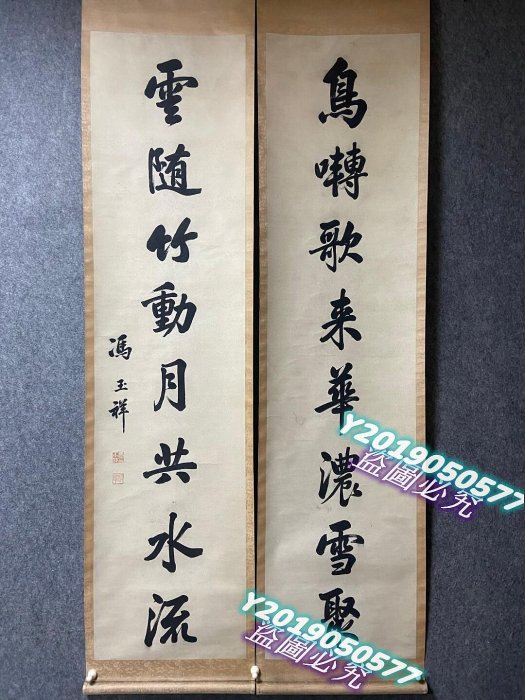 鳥囀歌来華濃雪聚
雲随竹動月共水流
馮玉祥
Y2019050577
盜圖必究
Y2019050577
盜圖必究